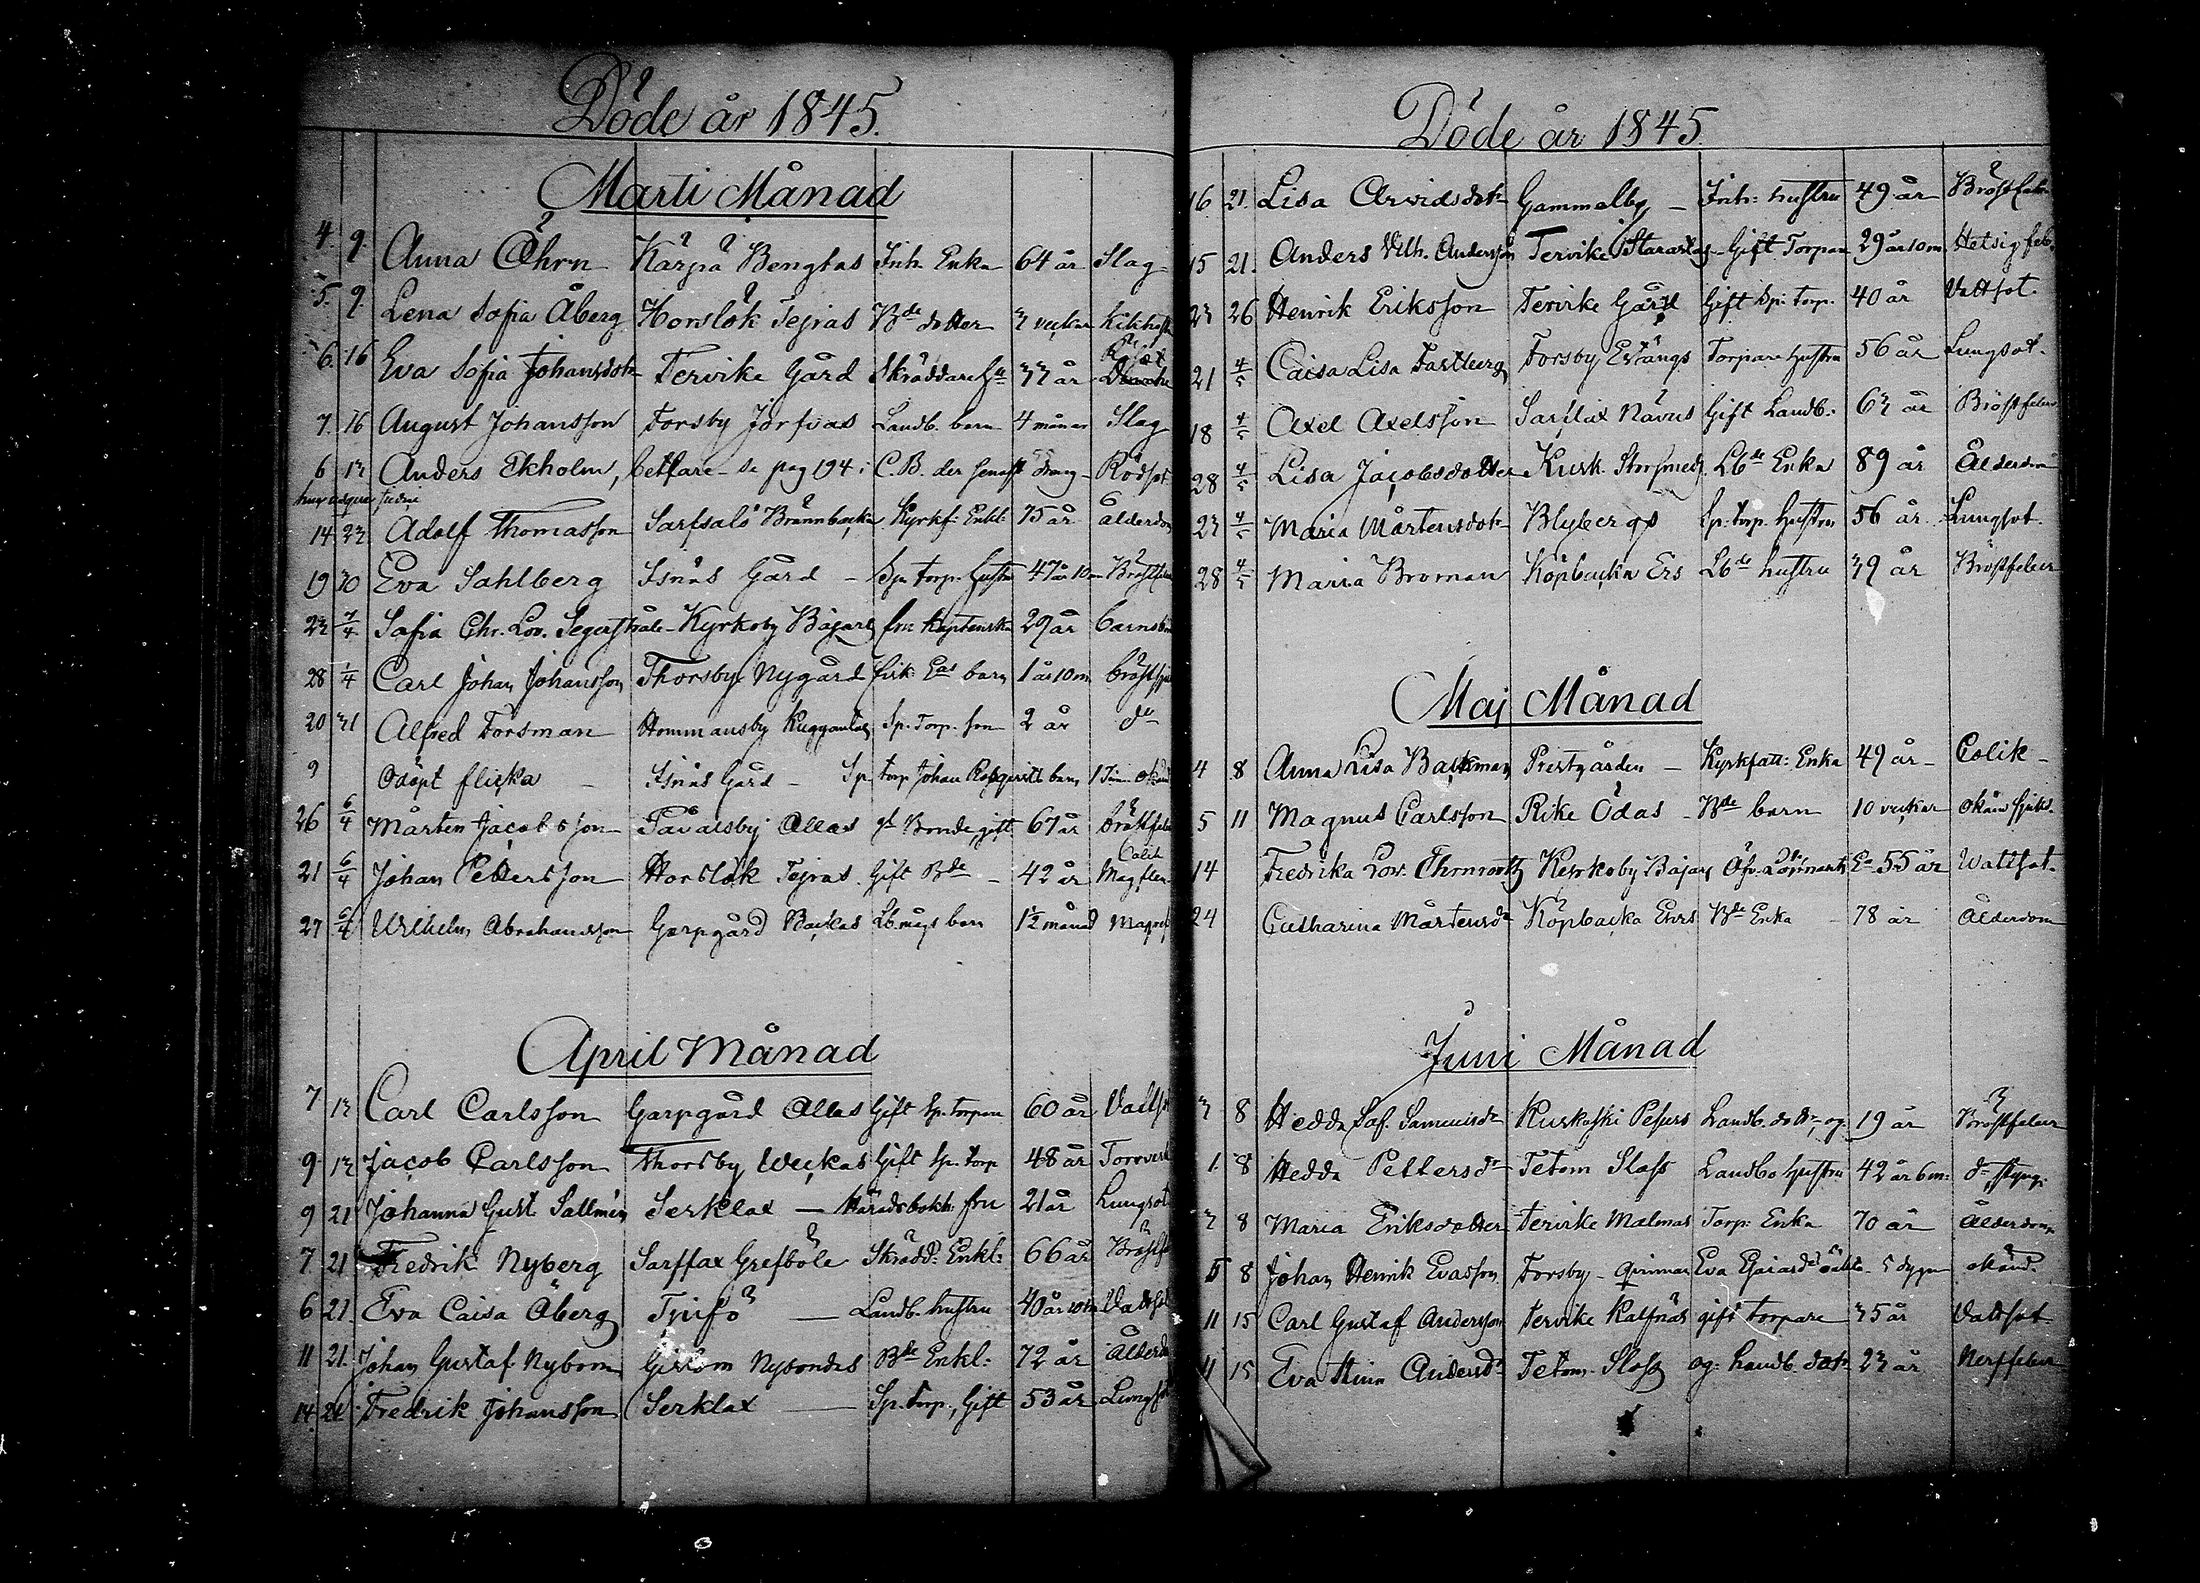 Döde år 1845.
Marti Månad
4. 9. Anna Öhrn Kärpä Bengtas Inh. Enka 64 år Slag
5. 9. Lena Sofia Åberg Horslök Tejras Bde dotter 3 veckor Kikhost
6. 16 Eva Sofia Johansdotr Tervike Gård Skräddare 33 år
7. 16 August Johansson Forsby Jorfvas Landb. barn 4 månar Slag
6 13 Anders Ekholm, bettlare se pag 194 i C.B. der Rödsot
14 23 Adolf Thomasson Sarfsalö Brännbacka Kyrkf. Enkl: 75 år ålderdom
19 30 Eva Sahlberg Isnäs Gård – Sp. torp. Hustru 47 år 10 m Bröstfeber
23 7/4 Sofia Chr. Lov. Segerstråle – Kyrkoby Bäjars fru Kaptenska 29 år barnsbörd
28 1/4 Carl Johan Johansson Thorsby Nygård barn 1 år 10 m bröstsjuk
20 31 Alfred Forsman Hommansby Kuggomtorp Sp. Torp. son 2 år do
9 Odöpt flicka – Isnäs Gård – Sp. torp Johan Rosqvist barn 1 Tim. okänd
26 6/4 Mårten Jacobsson Påvalsby Allas gl Bonde, gift 67 år bröstfeber
21 6/4 Johan Pettersson Horslök Tejras Gift Bde – 42 år Colik Magflen
27 6/4 Wilhelm Abrahamsson Garpgård Backas Lb.mågs barn 1½ månad Magref
April Månad
7 13 Carl Carlsson Garpgård Allas Gift Sp. torpare 60 år Vattsot
9 13 Jacob Carlsson Thorsby Weckas Gift Sp. torp 48 år Torrverk
9 21 Johanna Gust. Sallmén Serklax — Häradsbokh: fru 21 år Lungsot
7 21 Fredrik Nyberg Sarflax Grefböle Skrädd: Enkl: 66 år Bröstfeb
6 21 Eva Caisa Öberg Tjusö — Landb. hustru 40 år 10 m Vattsot
11 21. Johan Gustaf Nybom Gislom Nybondas Bde Enkl: 72 år Ålderdom
14 21 Fredrik Johansson Serklax — Sp. torp., Gift 53 år Lungsot
Döde år 1845.
16. 21. Lisa Arvidsdotr Gammelby – Inh: hustru 49 år Bröstfeber
15 21. Anders Vilh. Andersson Tervike Starastorp – Gift Torpare 29 år 10 m Hetsig feb.
23 26 Henrik Eriksson Tervike Gård Gift Sp. torp. 40 år Vattsot.
21 4/5 Caisa Lisa Fastberg Forsby Estängs Torpare hustru 56 år Lungsot.
18 4/5 Axel Axelsson Sarflax Nävus Gift Landb: 63 år Bröstfeber
28 4/5 Lisa Jacobsdotter Kusk. Storsmeds Lbde Enka 89 år Ålderdom
23 4/5 Maria Mårtensdotr Blybergs Sp. torp. hustru 56 år Lungsot.
28 4/5 Maria Broman Köpbacka Ers Lbde hustru 39 år Bröstfeber
Maj Månad
4 8 Anna Lisa Backman Prestgården – Kyrkfatt: Enka 49 år – Colik –
5 11 Magnus Carlsson Rike Ödas – Bde barn 10 veckor okänd sjukd.
14 Fredrika Lov. Ehrnrooth Kyrkoby Bäjars Öfv. Löjtnants Ea 55 år Wattsot.
24 Catharina Mårtensdr Köpbacka Ehrs Bde Enka – 78 år Ålderdom
Juni Månad
3 8 Hedda Sof. Samuelsdr Kuskoski Pesurs Landb. dottr og. 19 år Bröstfeber
1. 8 Hedda Pettersdr Tetom Slass Landbo hustru 42 år 6 m: do styng.
3 8 Maria Eriksdotter Tervike Malmas Torp: Enka 70 år Ålderdom
5 8 Johan Henrik Evasson Forsby – qvinnan Eva Esaiasdrs oäkta – 5 dygn okänd.
11 15 Carl Gustaf Andersson Tervike Kalfnäs gift torpare 35 år Vattsot
11 15 Eva Stina Andersdr Tetom Slass og: Landb. dotr 23 år Nerffeber